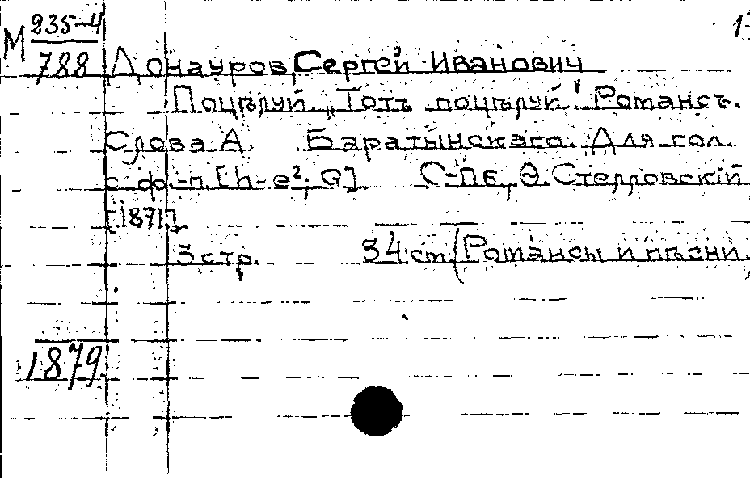 М 235-4 1
788 Донауров, Сергей Иванович
Поцѣлуй. „Тотъ поцѣлуй" Романсъ.
Слова А. Баратынскаго. Для гол.
с ф.-п. [h-e²; G] С-Пб., Ѳ. Стелловскій
[1871].
3 стр. 34 ст. (Романсы и пѣсни.
1879